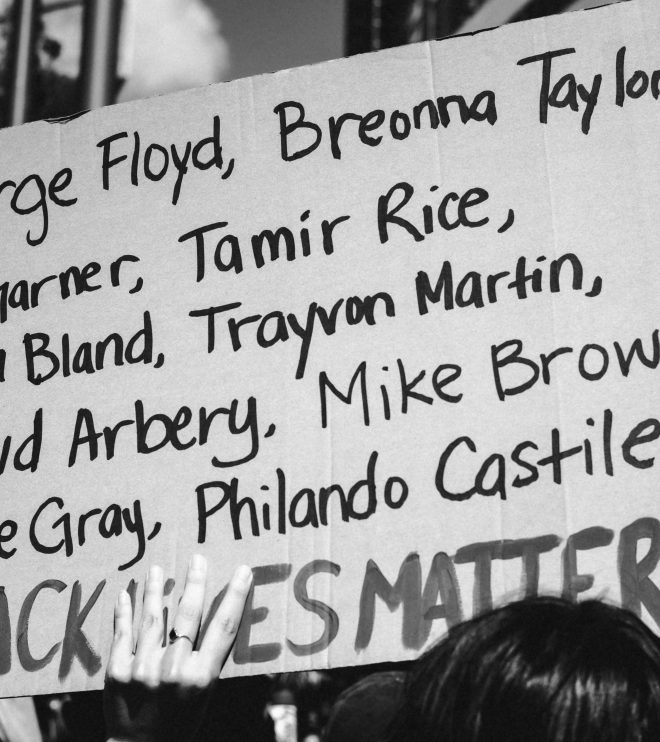 rge Floyd, Breonna Taylor
arner, Tamir Rice,
Bland, Trayvon Martin,
ud Arbery, Mike Brow
e Gray, Philando Castile
ACK LIVES MATTER